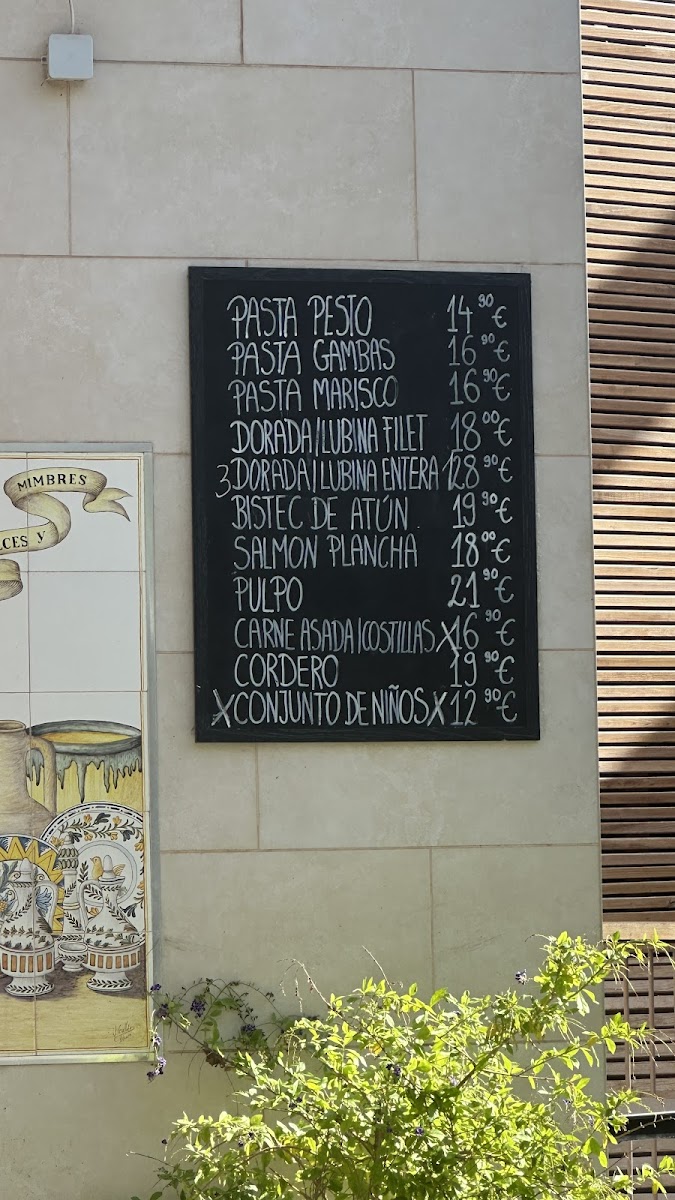 MIMBRES
CES Y
PASTA PESTO 14 90 €
PASTA GAMBAS 16 90 €
PASTA MARISCO 16 90 €
DORADA/LUBINA FILET 18 00 €
3 DORADA/LUBINA ENTERA 128 90 €
BISTEC DE ATÚN 19 90 €
SALMON PLANCHA 18 00 €
PULPO 21 90 €
CARNE ASADA/COSTILLAS X 16 90 €
CORDERO 19 90 €
X CONJUNTO DE NIÑOS X 12 90 €